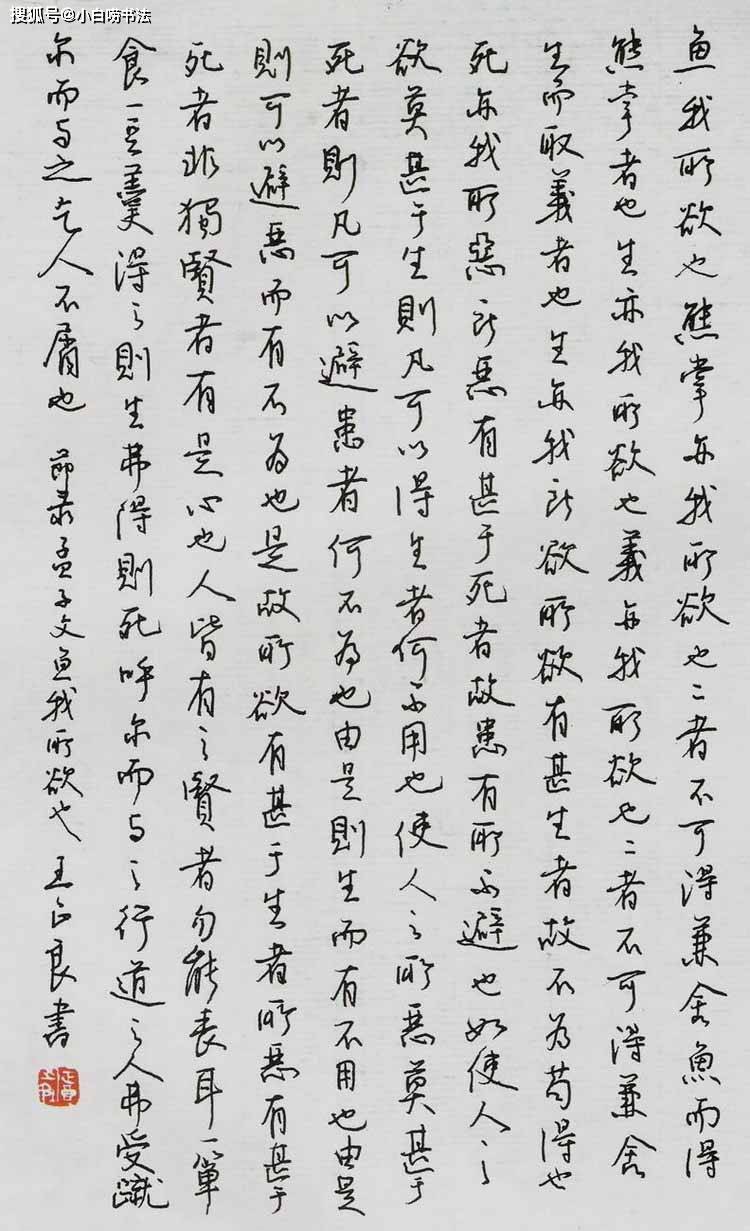 搜狐号@小白唠书法
魚我所欲也熊掌亦我所欲也二者不可得兼舍魚而得
熊掌者也生亦我所欲也義亦我所欲也二者不可得兼舍
生而取義者也生亦我所欲所欲有甚生者故不为苟得也
死亦我所惡所惡有甚于死者故患有所不避也如使人之
欲莫甚于生則凡可以得生者何不用也使人之所惡莫甚于
死者則凡可以避患者何不为也由是則生而有不用也由是
則可以避惡而有不为也是故所欲有甚于生者所惡有甚于
死者非獨賢者有是心也人皆有之賢者勿能丧耳一箪
食一豆羹得之則生弗得則死呼尔而与之行道之人弗受蹴
尔而与之乞人不屑也 節录孟子文魚我所欲也 王正良書